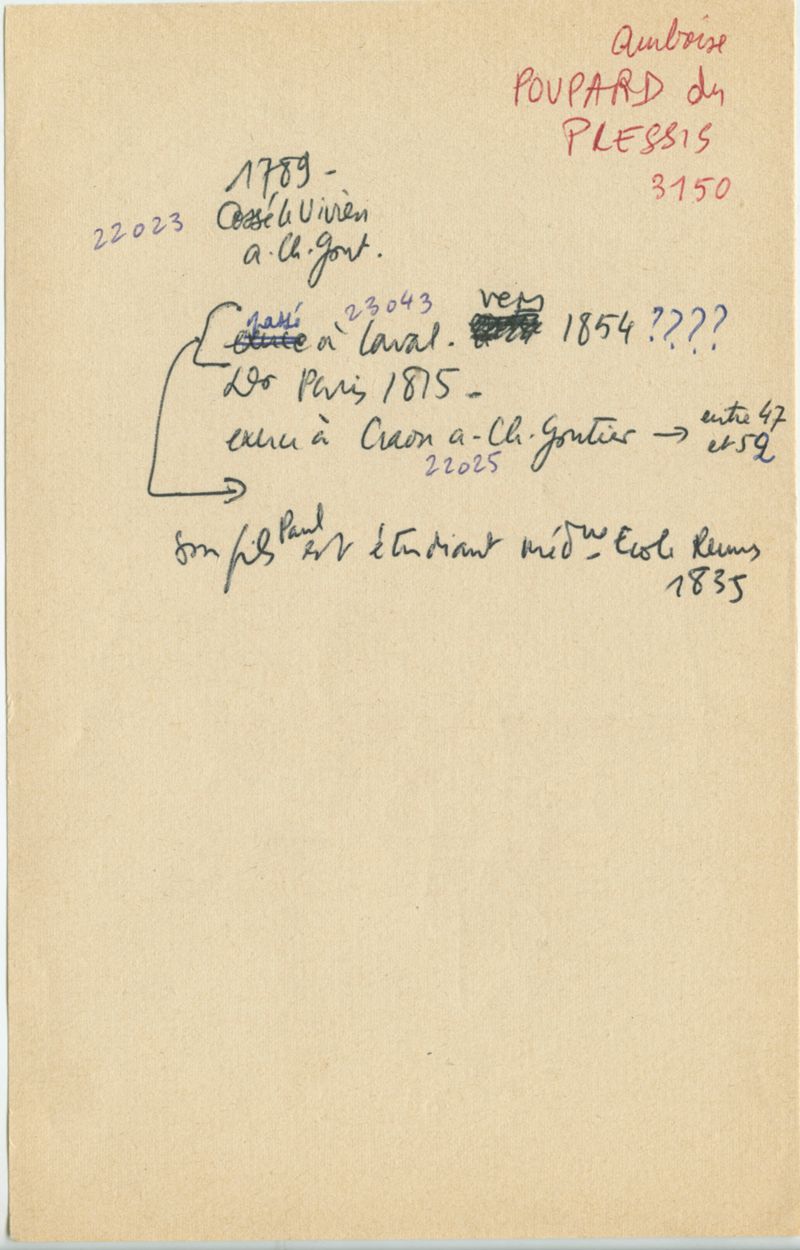 Amboise
POUPARD du
PLESSIS
3150
1789 -
22023 Cossé le Vivien
a. Ch. Gont.
passé 23043 vers
à Laval. 1854 ????
Dr Paris 1815 -
exerce à Craon a - Ch. Gontier → entre 47
et 52
22025
son fils Paul est étudiant médne - Ecole Rennes
1835